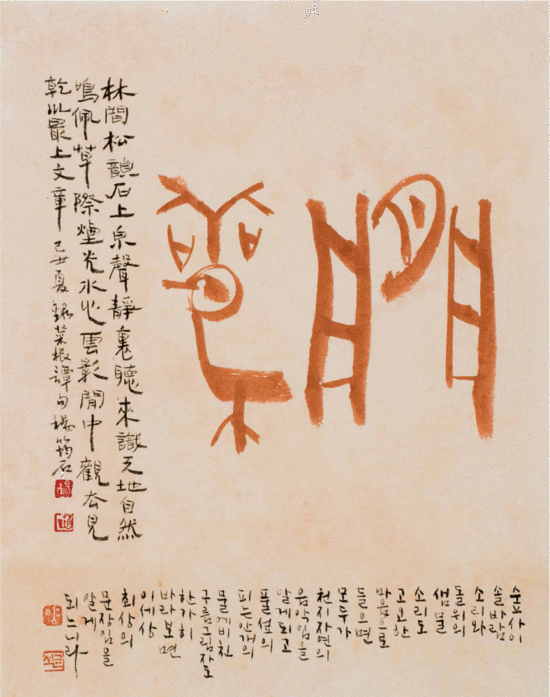 閒
林間松韻石上泉聲靜裏聽來識天地自然
鳴佩草際煙光水心雲影閒中觀去見
乾巛最上文章 己丑夏 錄菜根譚句 楊筠石
숲사이
솔바람
소리와
돌위의
샘물
소리도
고요한
마음으로
들으면
모두가
천지자연의
음악임을
알게되고
풀섶의
피는안개의
물에비친
구름그림자도
한가히
바라보면
이세상
최상의
문장임을
알게
되느니라